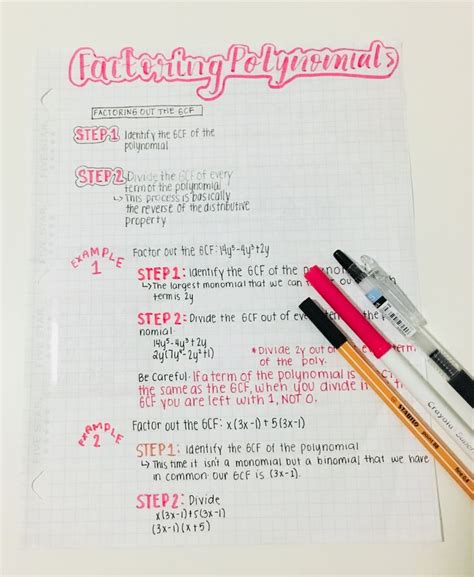 Factoring Polynomials
FACTORING OUT THE GCF
STEP 1 Identify the GCF of the
polynomial
STEP 2 Divide the GCF of every
term of the polynomial
↳ This process is basically
the reverse of the distributive
property
EXAMPLE 1
Factor out the GCF: 14y⁵-4y³+2y
STEP 1: Identify the GCF of the
↳ The largest monomial that we can
term is 2y
STEP 2: Divide the GCF out of
nomial
14y⁵-4y³+2y
2y(7y⁴-2y²+1)
*Divide 2y out of term
of the poly.
Be Careful: If a term of the polynomial is
the same as the GCF, when you divide it
GCF you are left with 1, NOT 0.
EXAMPLE 2
Factor out the GCF: x(3x-1)+5(3x-1)
STEP 1: Identify the GCF of the polynomial
↳ This time it isn't a monomial but a binomial that we have
in common. our GCF is (3x-1).
STEP 2: Divide
x(3x-1)+5(3x-1)
(3x-1)(x+5)
STABILO
Crayola